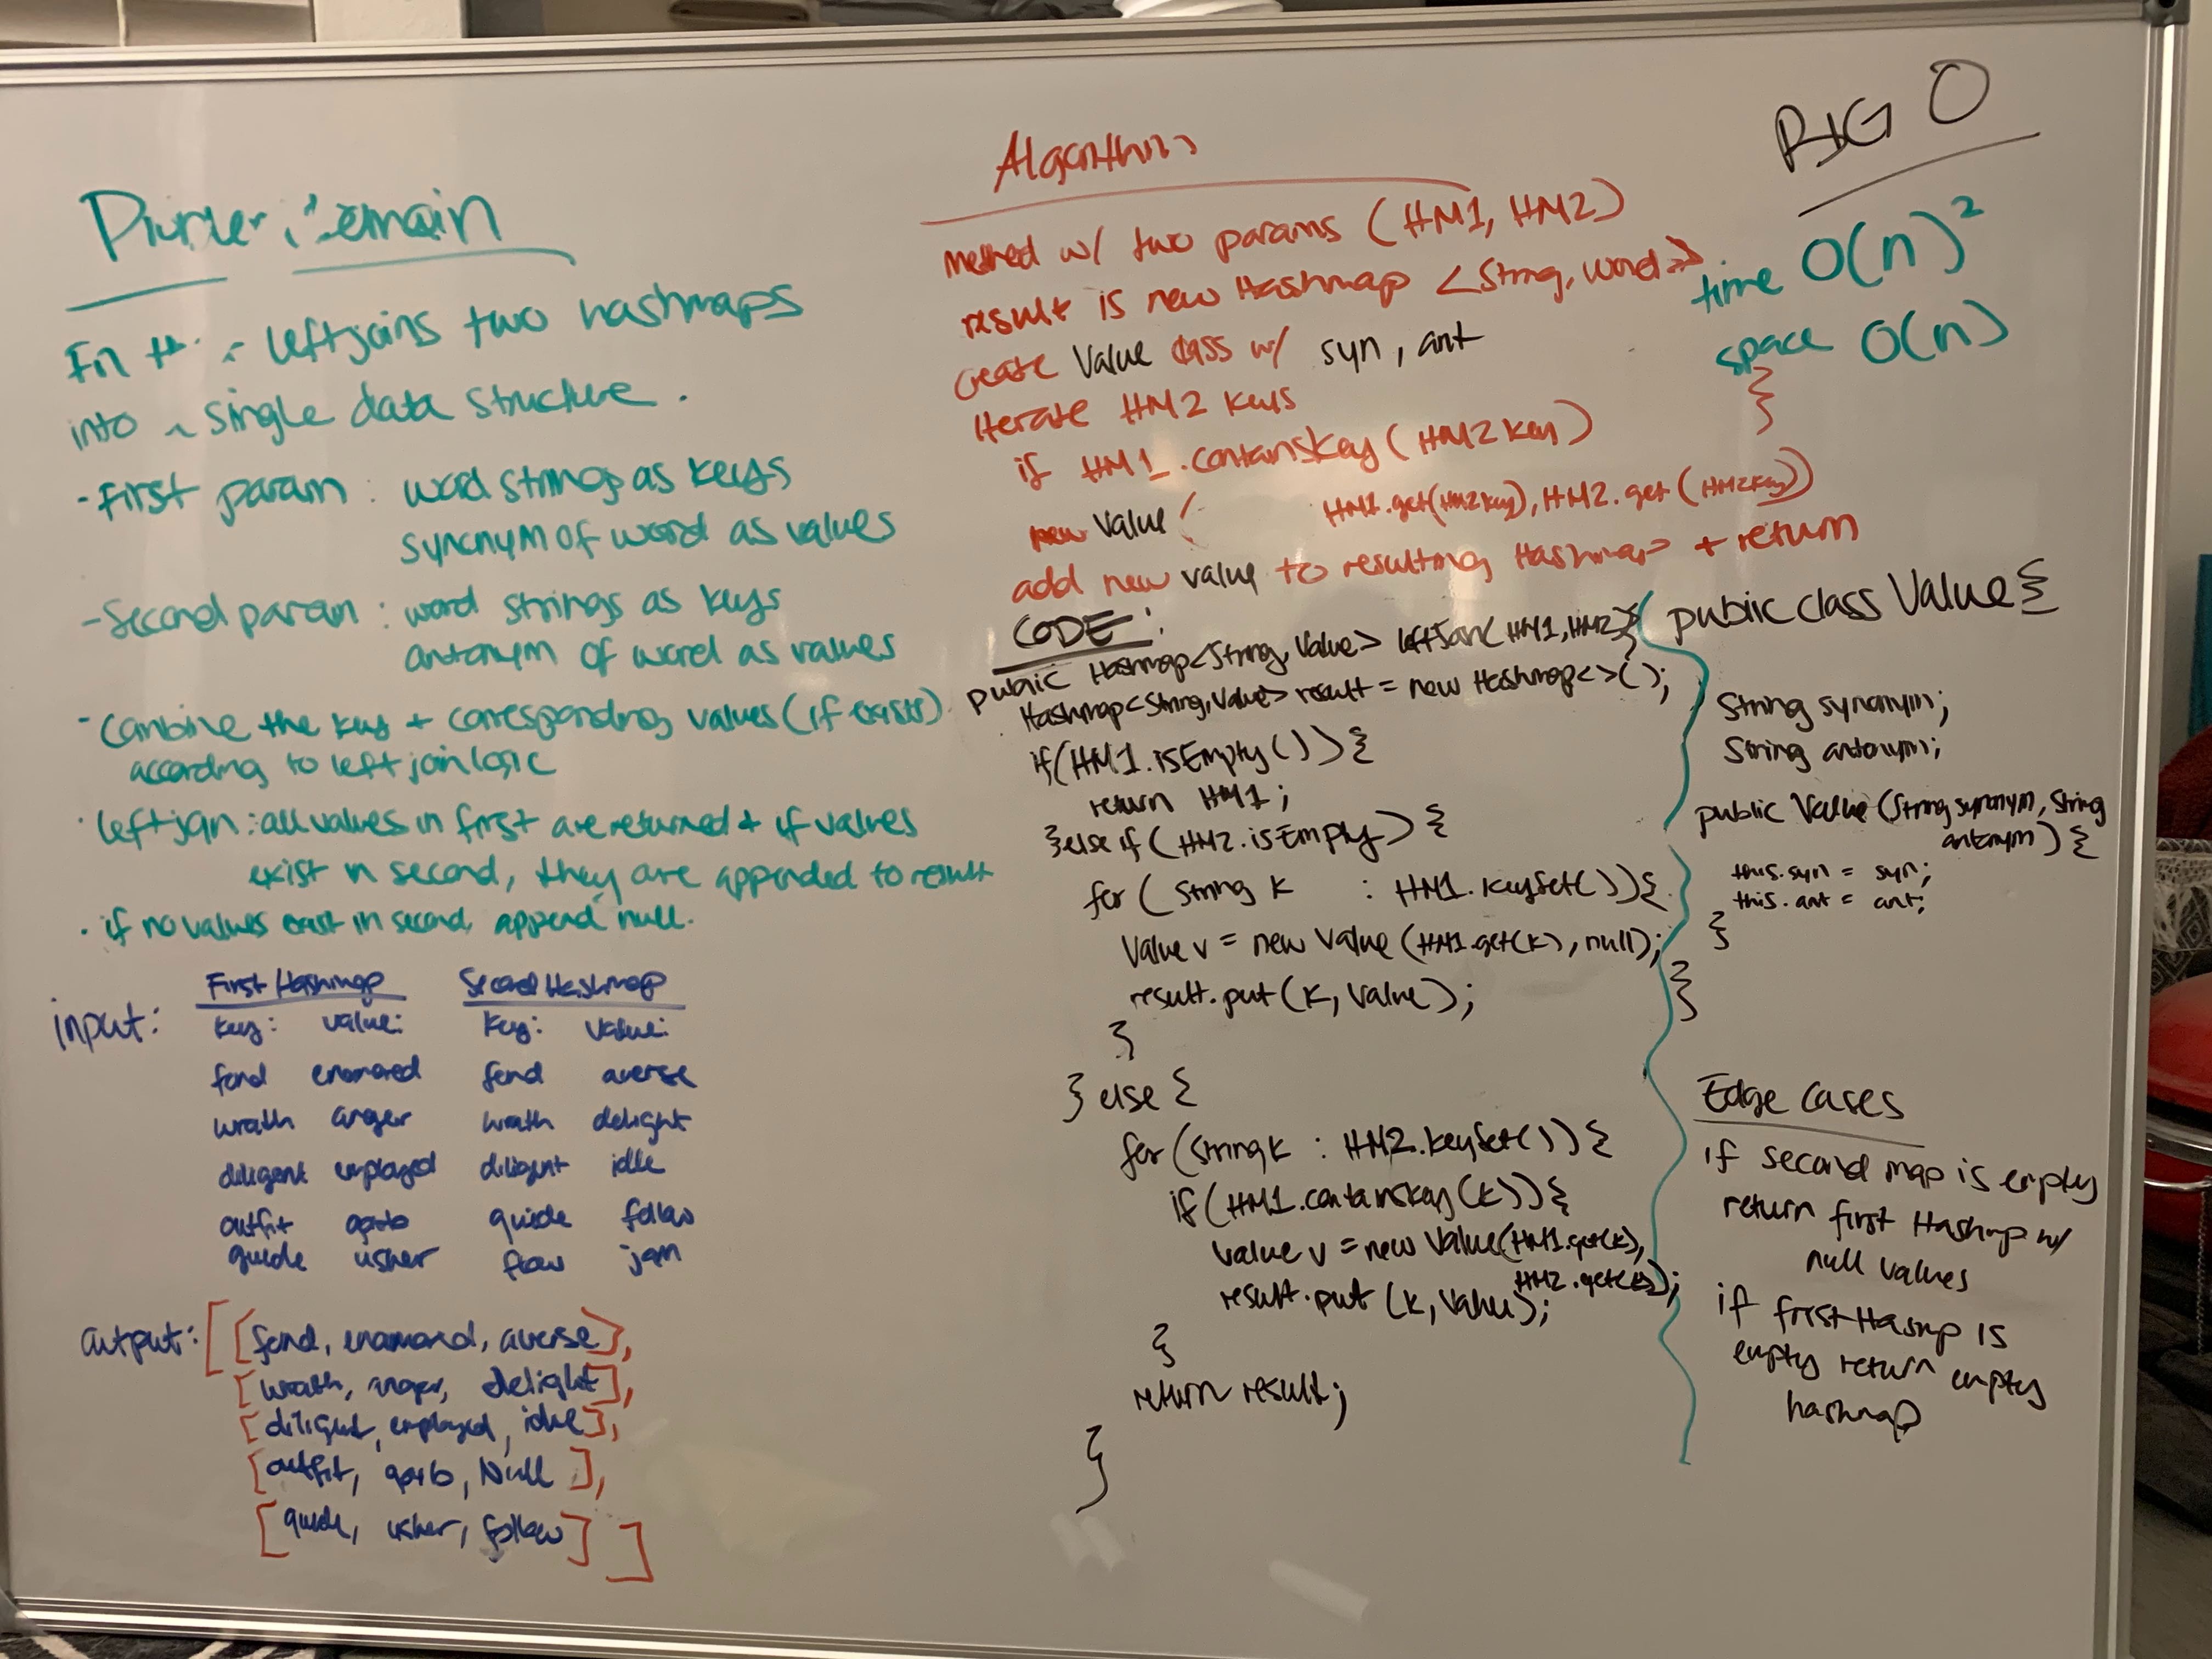 Domain
Fn leftjoins two hashmaps
into a single data structure.
- First param : word strings as keys
synonym of word as values
- Second param : word strings as keys
antonym of word as values
- Combine the key + corresponding values (if exists)
according to left join logic
· left join : all values in first are returned + if values
exist in second, they are appended to result
· if no values exist in second, append null.
First Hashmap Second Hashmap
input: key: value: key: value:
fond enamored fond averse
wrath anger wrath delight
diligent employed diligent idle
outfit garb guide follow
guide usher flow jam
output: [[fond, enamored, averse],
[wrath, anger, delight],
[diligent, employed, idle],
[outfit, garb, Null],
[guide, usher, follow]]
Algorithm
method w/ two params (HM1, HM2)
result is new Hashmap <String, Word>
create Value class w/ syn, ant
iterate HM2 keys
if HM1.containsKey(HM2 key)
new Value( HM1.get(HM2key), HM2.get(HM2key))
add new value to resulting Hashmap + return
CODE:
public Hashmap<String, Value> leftJoin(HM1, HM2){
Hashmap<String, Value> result = new Hashmap<>();
if(HM1.isEmpty()){
return HM1;
}else if(HM2.isEmpty){
for(String k : HM1.keySet()){
Value v = new Value(HM1.get(k), null);
result.put(k, Value);
}
}else{
for(String k : HM2.keySet()){
if(HM1.containsKey(k)){
Value v = new Value(HM1.get(k),
HM2.get(k));
result.put(k, Value);
}
return result;
}
BIG O
time O(n)²
space O(n)
}
public class Value{
String synonym;
String antonym;
public Value(String synonym, String
antonym){
this.syn = syn;
this.ant = ant;
}
}
Edge Cases
if second map is empty
return first Hashmp w/
null values
if first Hasmp is
empty return empty
hashmap